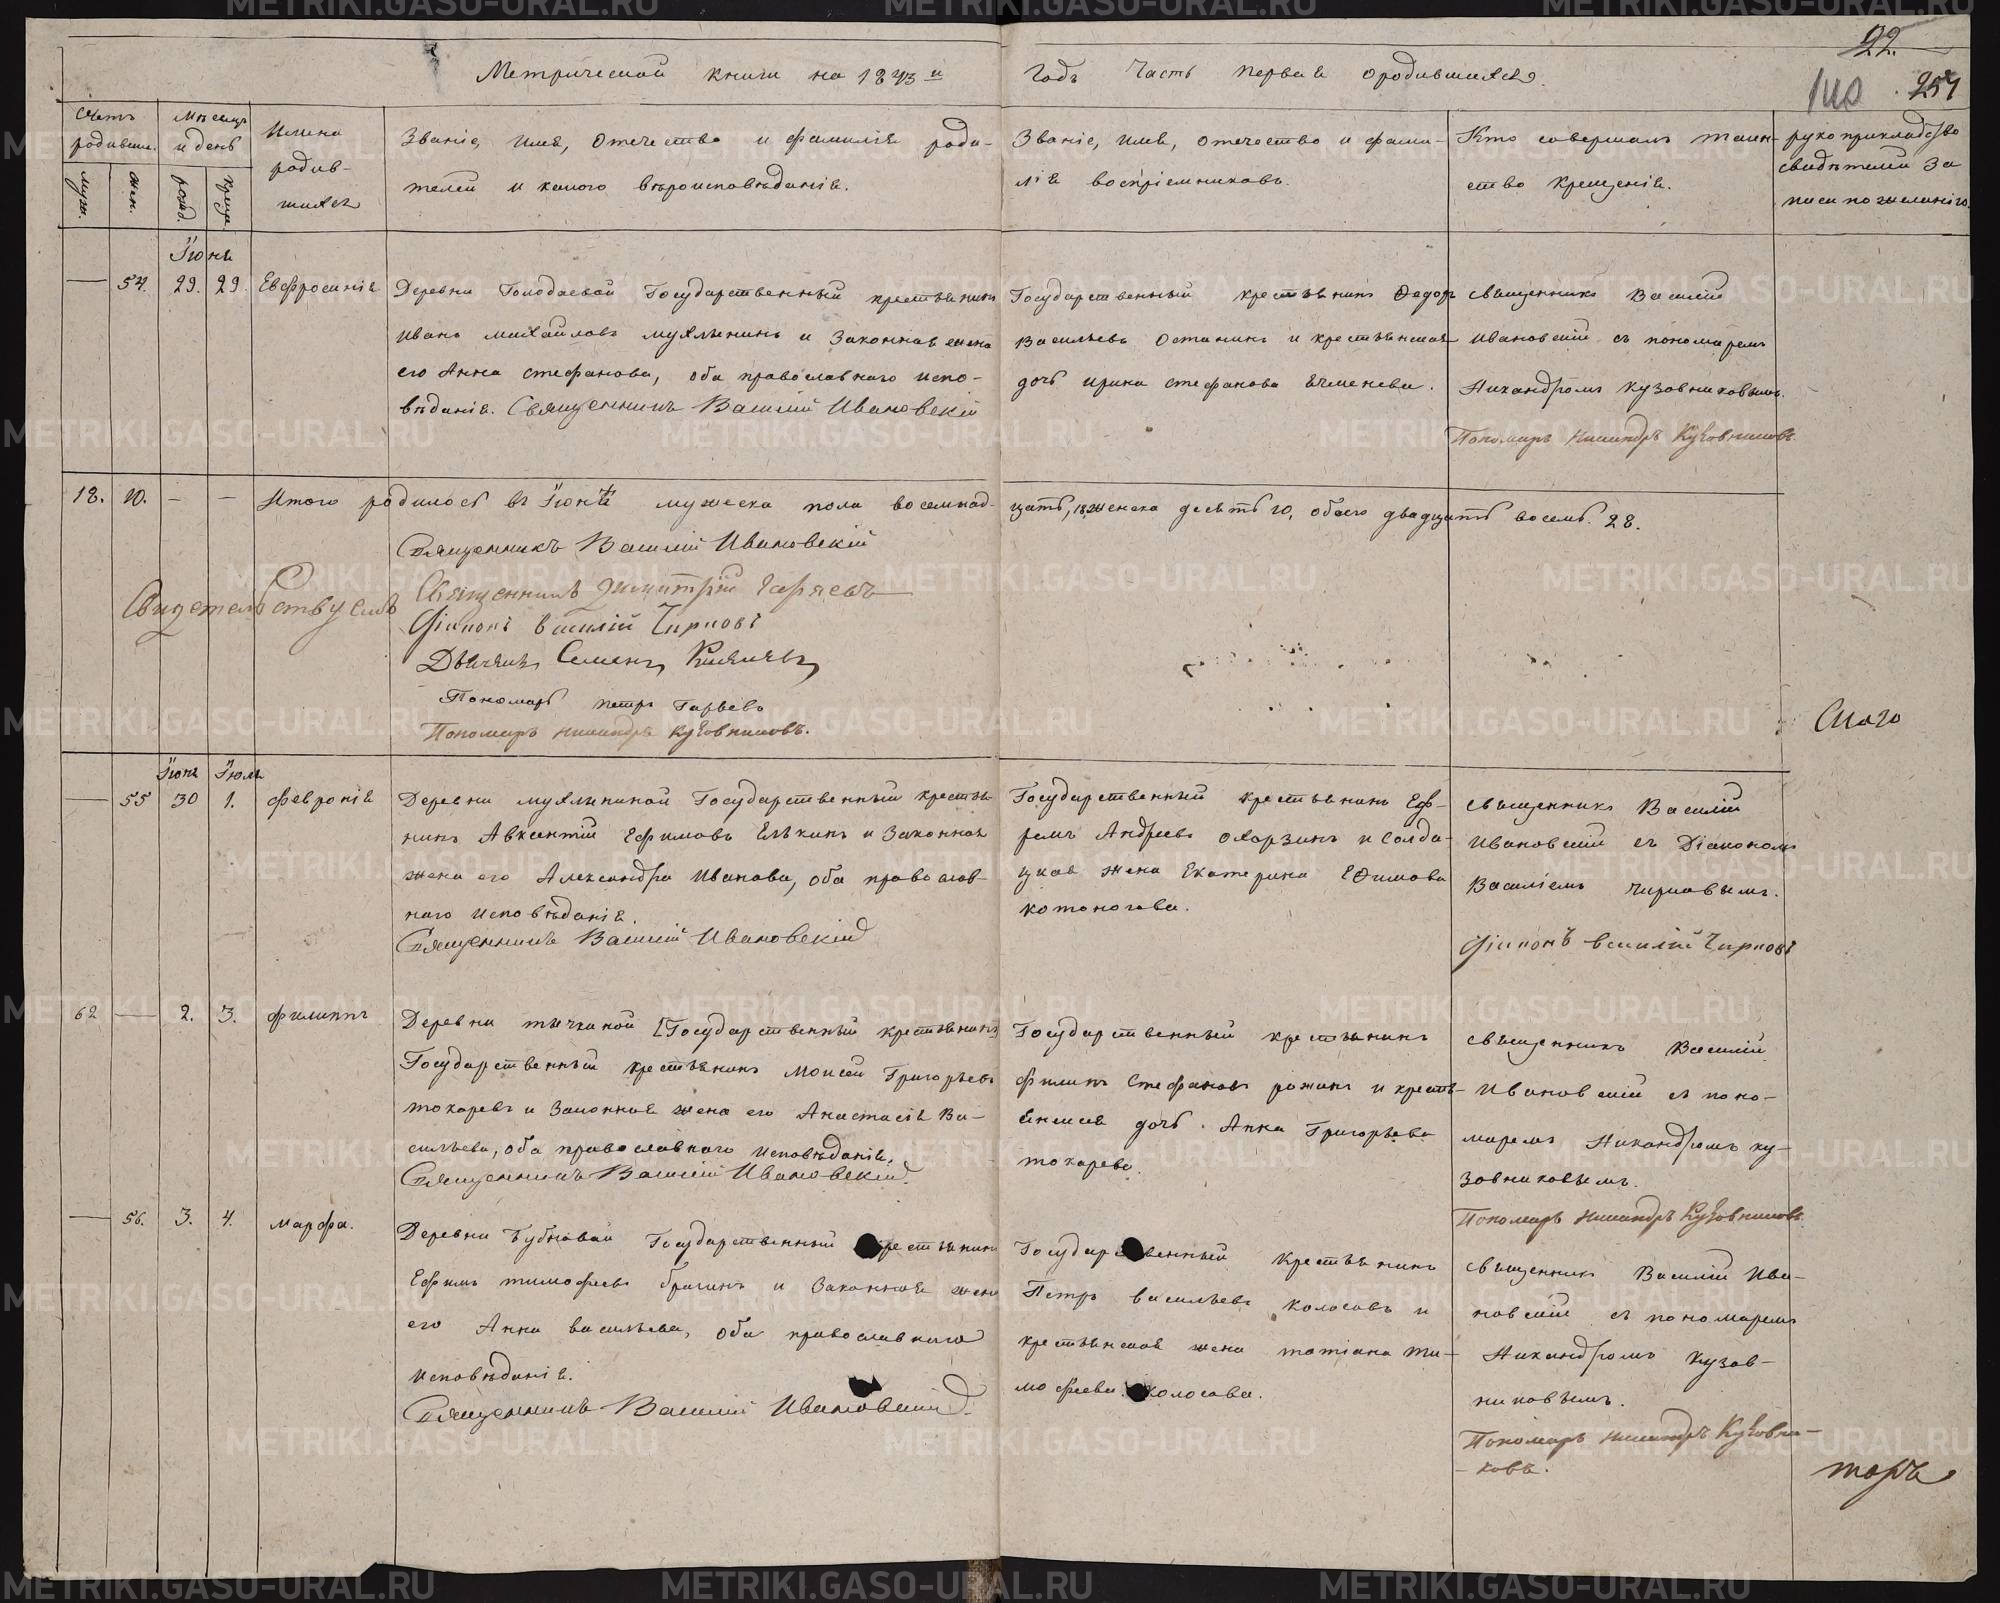 22.
254
Метрической книги на 1873й Годъ Часть первая о родившихся.
Счетъ родивших.
Мѣсяцъ и день
Имена родив-
шихся
Званіе, имя, отечество и фамилія роди-
телей и какого вѣроисповѣданія.
Званіе, имя, отечество и фами-
лія воспріемниковъ.
Кто совершалъ таин-
ство крещенія.
рукоприкладство
свидѣтелей за
писи по желанію.
муж.
жен.
рожд.
крещ.
Іюнь
54. 29. 29. Евфросинія
Деревни Голодаевой Государственный крестьянинъ
Иванъ Михайловъ Мухлынинъ и законная жена
его Анна Стефанова, оба православнаго испо-
вѣданія. Священникъ Василій Ивановскій
Государственный крестьянинъ Федоръ
Васильевъ Останинъ и крестьянская
дочь Ирина Стефанова Ячменева.
Священникъ Василій
Ивановскій съ пономаремъ
Никандромъ Кузовниковымъ.
Пономарь Никандръ Кузовниковъ.
18. 10. — — Итого родилось въ Іюнѣ мужеска пола восемнад-
цать, 18, женска десять 10, обоего двадцать восемь. 28.
Священникъ Василій Ивановскій
Свидетельствуемъ
Священникъ Димитрій Гаряевъ
Діаконъ Василій Чирковъ
Дьячекъ Семенъ
Пономарь Петръ Гаряевъ
Пономарь Никандръ Кузовниковъ.
Сного
Іюнь Іюль
55 30 1. Февронія
Деревни Мухлыниной Государственный крестья-
нинъ Авксентій Ефимовъ Елькинъ и законная
жена его Александра Иванова, оба православ-
наго исповѣданія.
Священникъ Василій Ивановскій
Государственный крестьянинъ Еф-
ремъ Андреевъ Охорзинъ и солда-
цкая жена Екатерина Ефимова
Котоногова.
Священникъ Василій
Ивановскій съ Діакономъ
Василіемъ Чирковымъ.
Діаконъ Василій Чирковъ
62 — 2. 3. Филиппъ
Деревни Тычкиной [Государственный крестьянинъ]
Государственный крестьянинъ Моисей Григорьевъ
Токаревъ и законная жена его Анастасія Ва-
сильева, оба православнаго исповѣданія.
Священникъ Василій Ивановскій.
Государственный крестьянинъ
Филипъ Стефановъ Рожинъ и кресть-
янская дочь Анна Григорьева
Токарева.
Священникъ Василій
Ивановскій съ поно-
маремъ Никандромъ Ку-
зовниковымъ.
Пономарь Никандръ Кузовниковъ.
— 56. 3. 4. Марфа.
Деревни Бубновой Государственный крестьянинъ
Ефимъ Тимофеевъ Брагинъ и законная жена
его Анна Васильева, оба православнаго
исповѣданія.
Священникъ Василій Ивановскій.
Государственный крестьянинъ
Петръ Васильевъ Колосовъ и
крестьянская жена Татіана Ти-
мофеева Колосова.
Священникъ Василій Ива-
новскій съ пономаремъ
Никандромъ Кузов-
никовымъ.
Пономарь Никандръ Кузовни-
ковъ.